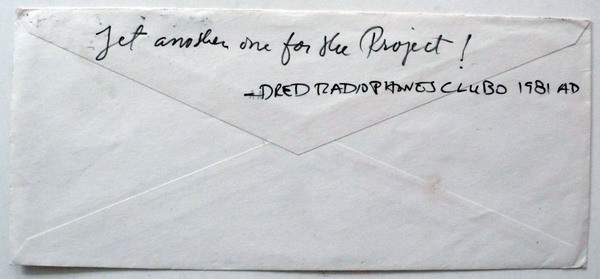 Yet another one for the Project!
-DRED RADIOPHONES CLUBO 1981 AD